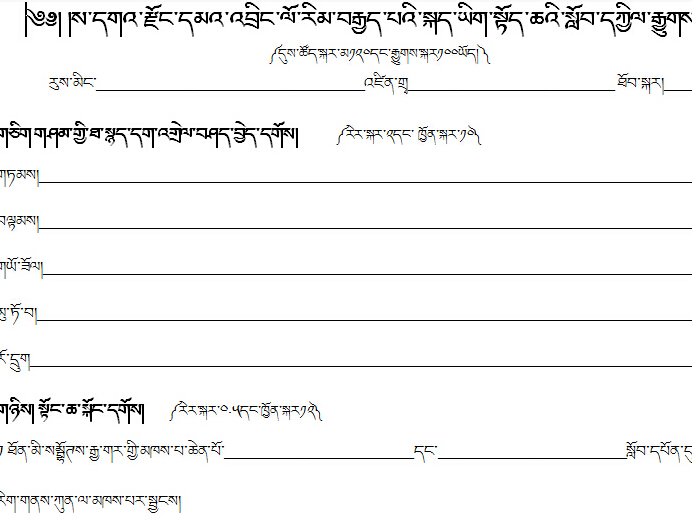 ༄༅། །ས་དགའ་རྫོང་དམའ་འབྲིང་ལོ་རིམ་བརྒྱད་པའི་སྐད་ཡིག་སྟོད་ཆའི་སློབ་དཀྱིལ་རྒྱུགས
༼དུས་ཚོད་སྐར་མ༡༢༠དང་རྒྱུགས་སྐར༡༠༠ཡོད།༽
རུས་མིང་____________________འཛིན་གྲྭ____________________ཐོབ་སྐར།____
གཅིག གཤམ་གྱི་ཐ་སྙད་དག་འགྲེལ་བཤད་བྱེད་དགོས། ༼རེར་སྐར་༢དང་ ཁྱོན་སྐར་༡༠༽
གཏམས།____________________
བལྟམས།____________________
གཡོ་ཟོལ།____________________
མུ་ཏོ་བ།____________________
རོ་དྲུག____________________
གཉིས། སྟོང་ཆ་སྐོང་དགོས། ༼རེར་སྐར་༠.༥དང་ཁྱོན་སྐར༡༢༽
༡ ཐོན་མི་སམྦྷོཊས་རྒྱ་གར་གྱི་མཁས་པ་ཆེན་པོ་____________________དང་____________________སློབ་དཔོན་དུ
རིག་གནས་ཀུན་ལ་མཁས་པར་སྦྱངས།